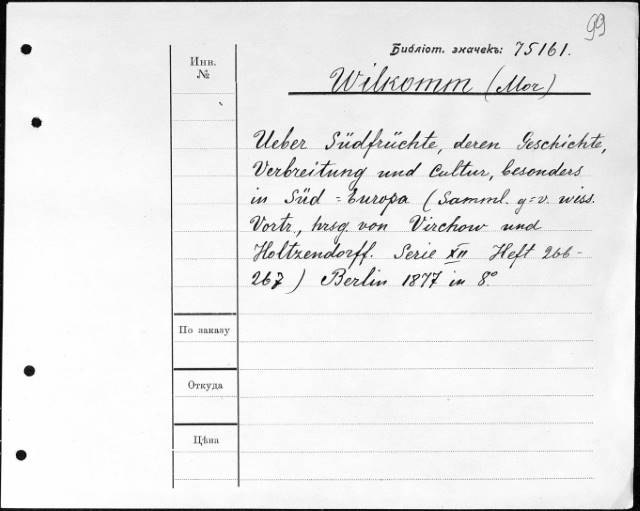 99
Библіот. значекъ: 75161.
Инв.
№
Wilkomm (Mor)
Ueber Südfrüchte, deren Geschichte,
Verbreitung und Cultur, besonders
in Süd=Europa (Samml. g=v. wiss.
Vortr., hrsg von Virchow und
Holtzendorff. Serie XII Heft 266-
267) Berlin 1877 in 8°.
По заказу
Откуда
Цѣна